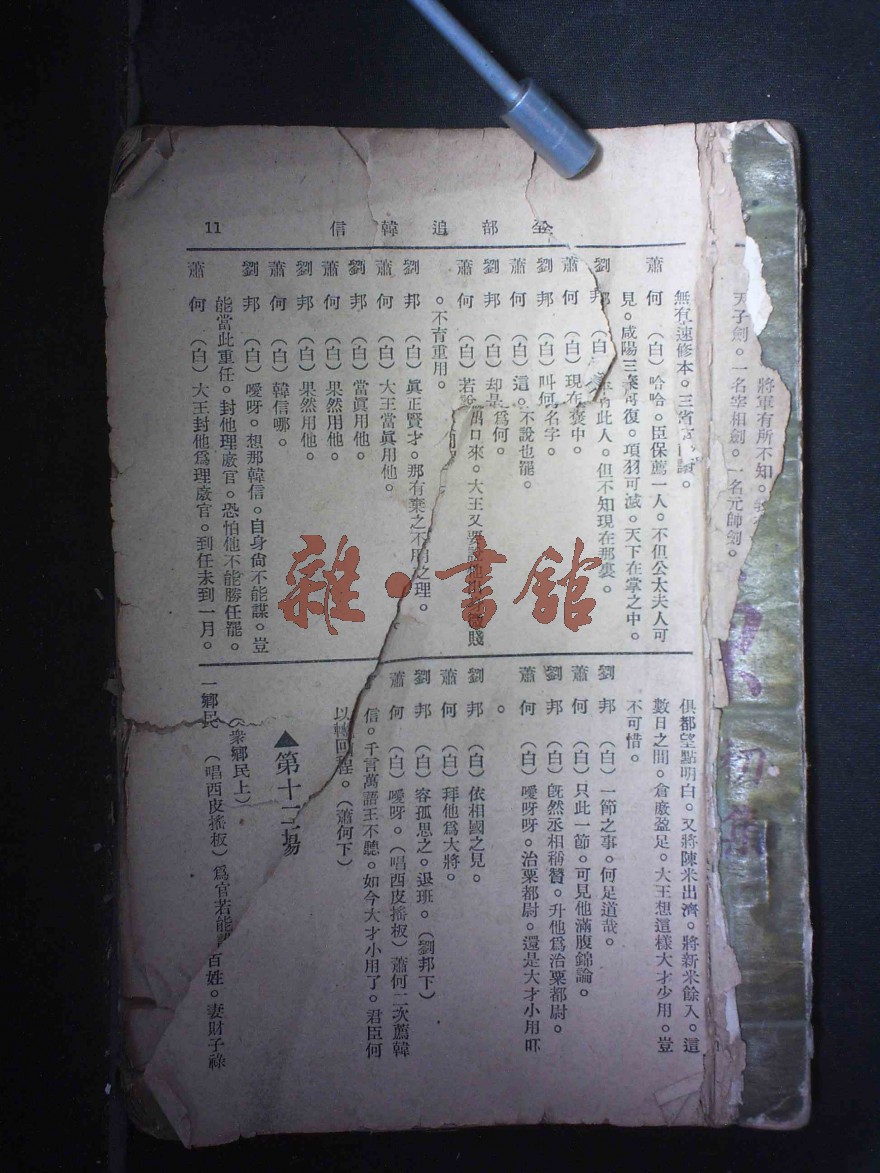 全部追韓信
11
將軍有所不知。
天子劍。一名宰相劍。一名元帥劍。
無有速修本。三省
蕭何（白）哈哈。臣保薦一人。不但公太夫人可
見。咸陽三秦可復。項羽可滅。天下在掌之中。
劉邦（白）此人。但不知現在那裏。
蕭何（白）現在褒中。
劉邦（白）叫何名字。
蕭何（白）這。不說也罷。
劉邦（白）却是爲何。
蕭何（白）若說出口來。大王又要說他出身微賤
。不肯重用。
劉邦（白）眞正賢才。那有棄之不用之理。
蕭何（白）大王當眞用他。
劉邦（白）當眞用他。
蕭何（白）果然用他。
劉邦（白）果然用他。
蕭何（白）韓信哪。
劉邦（白）噯呀。想那韓信。自身尙不能謀。豈
能當此重任。封他理廒官。恐怕他不能勝任罷。
蕭何（白）大王封他爲理廒官。到任未到一月。
俱都望點明白。又將陳米出濟。將新米餘入。這
數日之間。倉廒盈足。大王想這樣大才少用。豈
不可惜。
劉邦（白）一節之事。何足道哉。
蕭何（白）只此一節。可見他滿腹錦論。
劉邦（白）旣然丞相稱贊。升他爲治粟都尉。
蕭何（白）噯呀呀。治粟都尉。還是大才小用吓
。
劉邦（白）依相國之見。
蕭何（白）拜他爲大將。
劉邦（白）容孤思之。退班。（劉邦下）
蕭何（白）噯呀。（唱西皮搖板）蕭何二次薦韓
信。千言萬語王不聽。如今大才小用了。君臣何
以轉回程。（蕭何下）
▲第十二場
（衆鄉民上）
一鄉民（唱西皮搖板）爲官若能 百姓。妻財子祿
初集
雜·書館